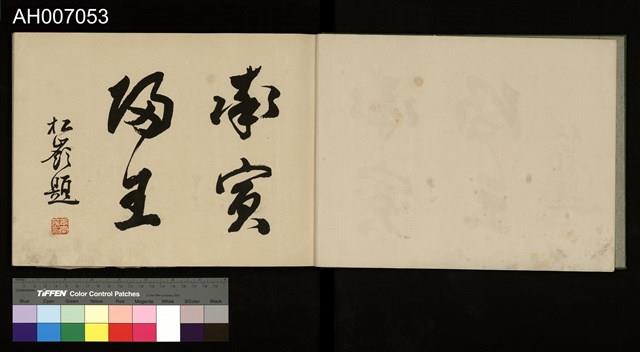 AH007053
寅
歸主
松嶺題
TIFFEN Color Control Patches
Blue Cyan Green Yellow Red Magenta White 3/Color Black